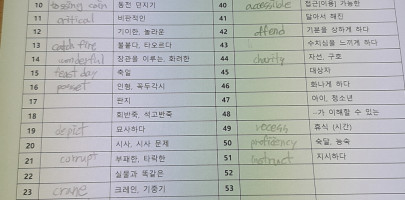 10 tossing coin 동전 던지기 40 accessible 접근(이용) 가능한
11 critical 비판적인 41 알아서 해진
12 기이한, 놀라운 42 offend 기분을 상하게 하다
13 catch fire 불붙다, 타오르다 43 수치심을 느끼게 하다
14 wonderful 장관을 이루는, 화려한 44 charity 자선, 구호
15 feast day 축일 45 대상자
16 puppet 인형, 꼭두각시 46 화나게 하다
17 판지 47 아이, 청소년
18 회반죽, 석고반죽 48 ~가 이해할 수 있는
19 depict 묘사하다 49 recess 휴식 (시간)
20 시사, 시사 문제 50 proficiency 숙달, 능숙
21 corrupt 부패한, 타락한 51 instruct 지시하다
22 실물과 똑같은 52
23 crane 크레인, 기중기 53